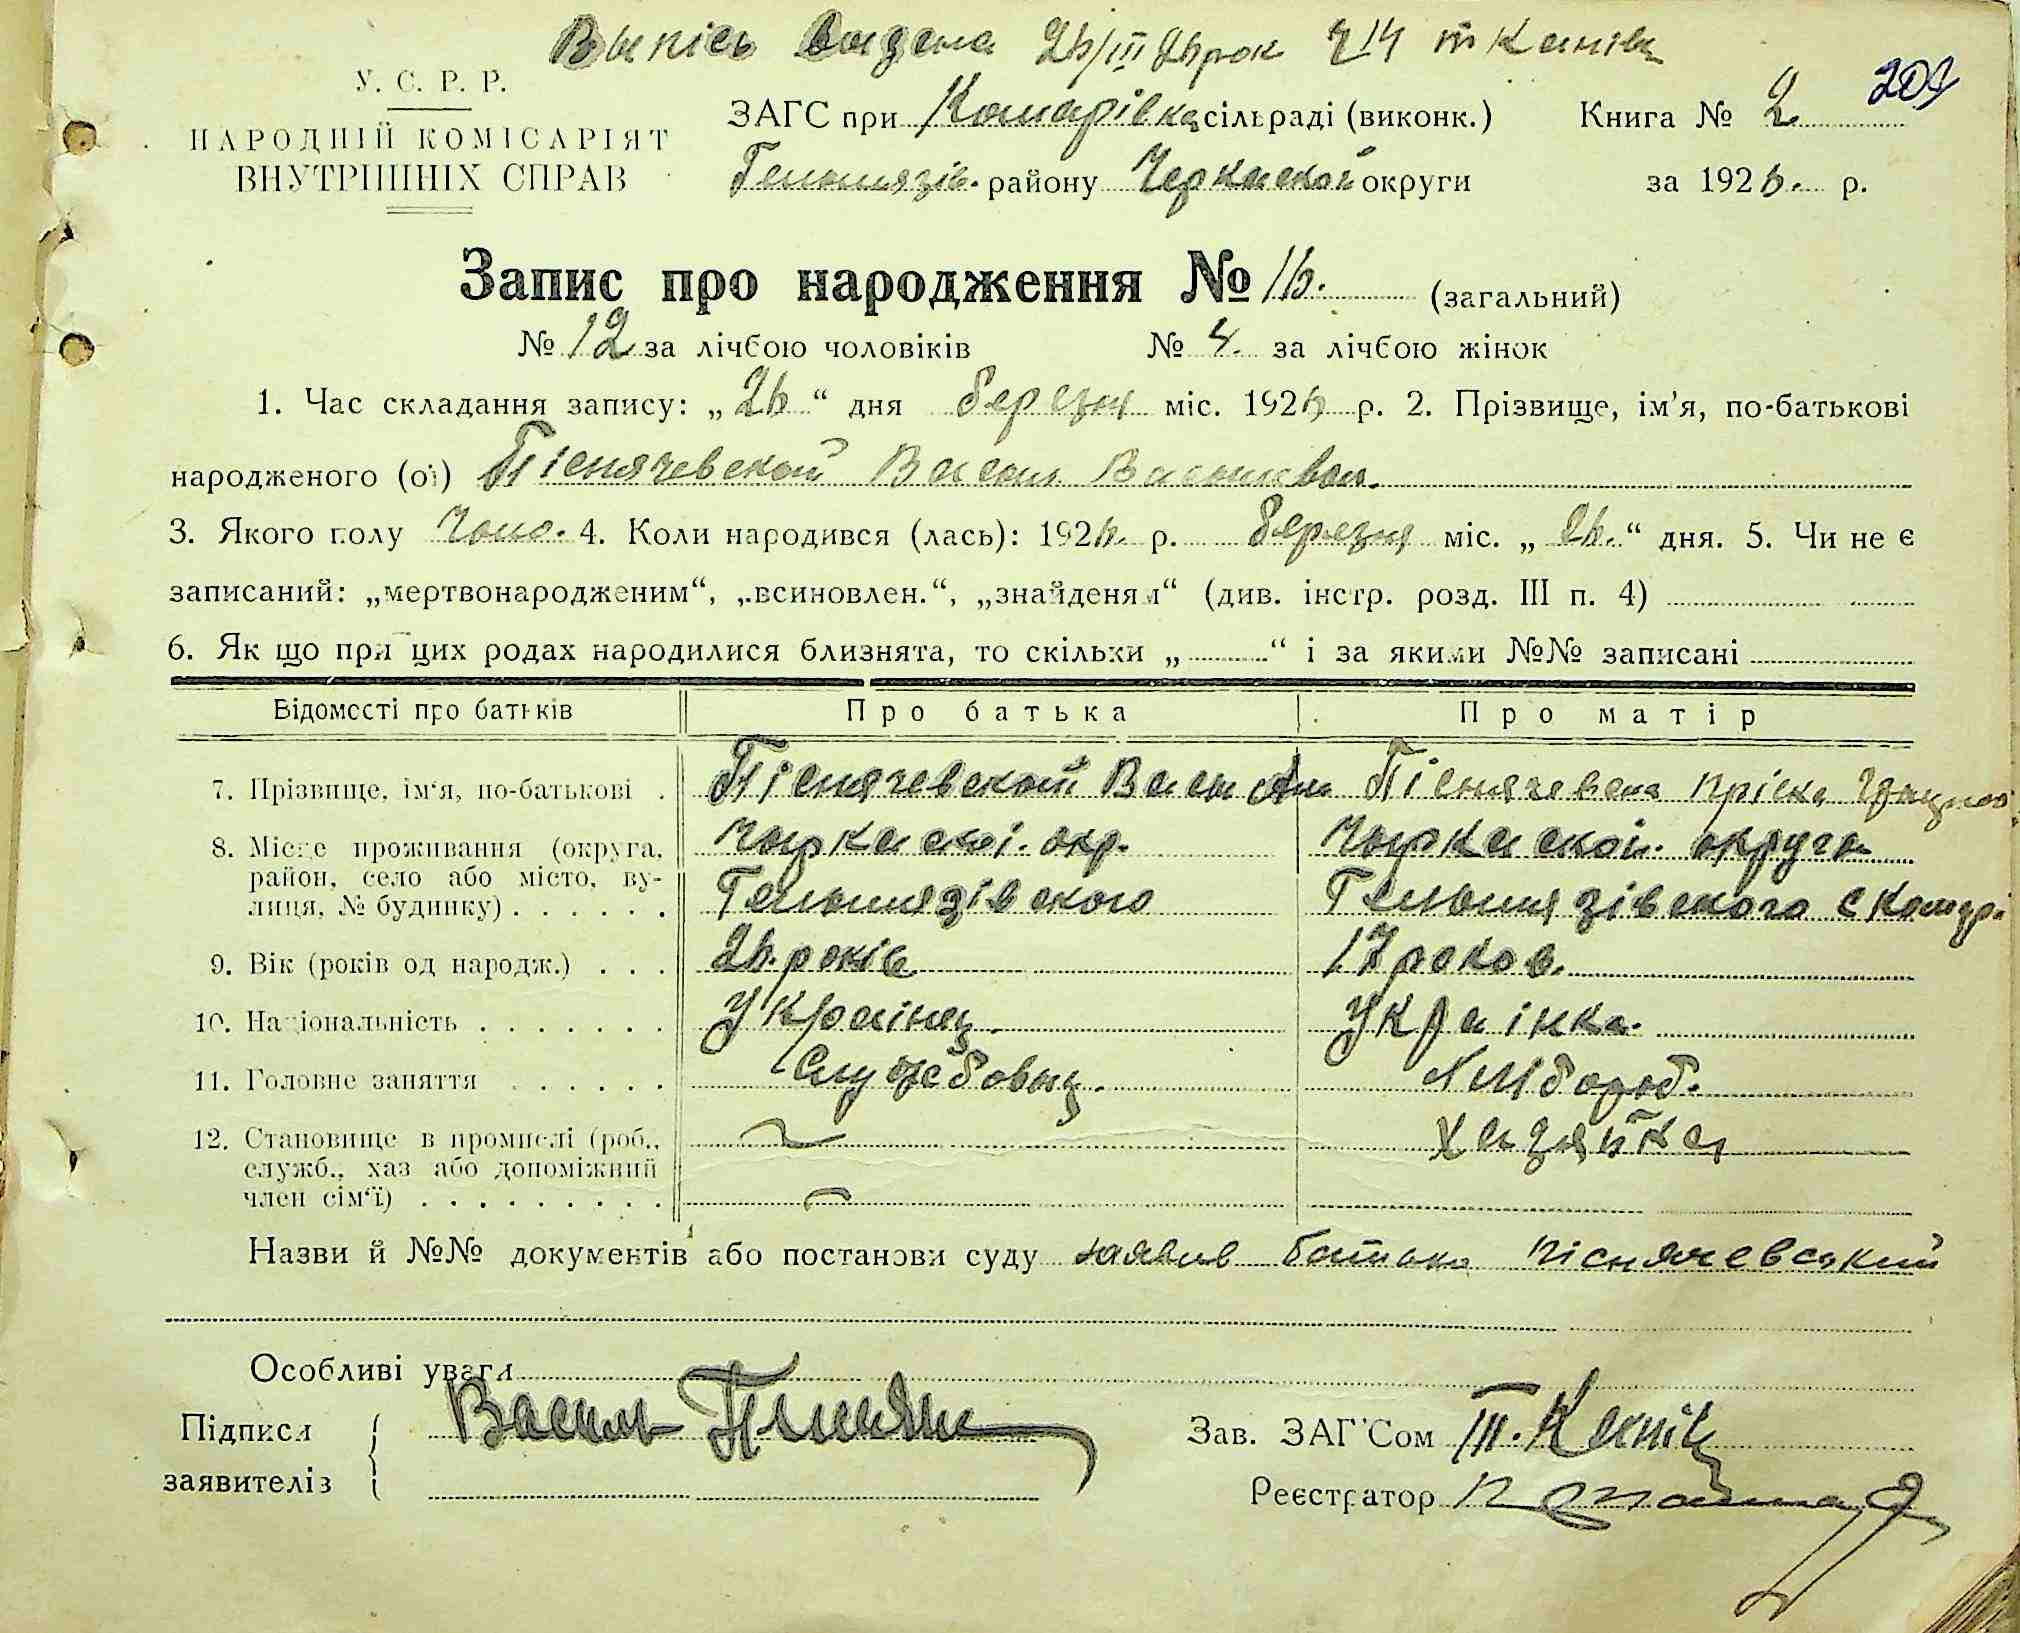 Випісь видана 26/III 26 рок
204
У. С. Р. Р.
НАРОДНІЙ КОМІСАРІЯТ
ВНУТРІШНІХ СПРАВ
ЗАГС при Комарівка сільраді (виконк.)
Книга № 2
Гельмязів. району Черкаской округи
за 1926. р.
Запис про народження № 16. (загальний)
№ 12 за лічбою чоловіків № 4. за лічбою жінок
1. Час складання запису: „26“ дня березня міс. 1926 р. 2. Прізвище, ім’я, по-батькові
народженого (ої) Піснячевской Василь Васильвич.
3. Якого полу Чоло. 4. Коли народився (лась): 1926. р. березня міс. „26.“ дня. 5. Чи не є
записаний: „мертвонародженим“, „всиновлен.“, „знайденям“ (див. інстр. розд. III п. 4)
6. Як що при цих родах народилися близнята, то скільки „ “ і за якими №№ записані
Відомості про батьків Про батька Про матір
7. Прізвище, ім‘я, по-батькові . Піснячевской Васи Піснячевска Пріска
8. Місце проживання (округа, район, село або місто, вулиця, № будинку) . . . . . . Чыркаскоі. окр. Чыркаской. округи
Гельмязівского Гельмязівского с Комарі
9. Вік (років од народж.) . . . 26. років 17 роков.
10. Національність . . . . . . . Українец. Українка.
11. Головне заняття . . . . . . Службовец. Хлібороб.
12. Становище в промислі (роб., служб., хаз або допоміжний член сім‘ї) . . . . . . . . . хазяйка
Назви й №№ документів або постанови суду заявив батько Піснячевський
Особливі уваги
Підписи
заявителів
Василь
Зав. ЗАГ'Сом Т. Каніве
Реєстратор